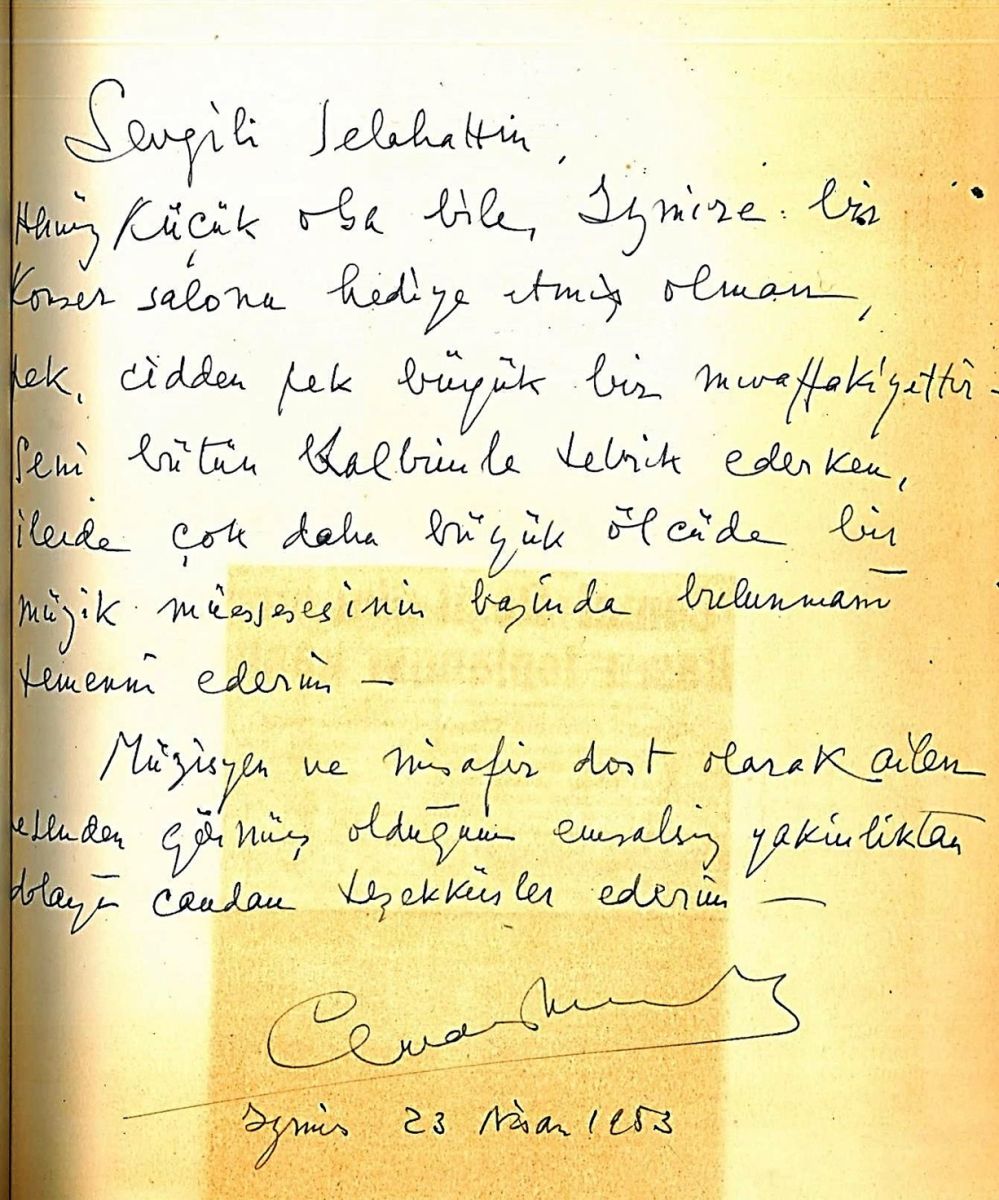 Sevgili Selahattin,
Henüz küçük olsa bile, İzmire bir
Konser salonu hediye etmiş olman,
pek, cidden pek büyük bir muvaffakiyettir -
Seni bütün kalbimle tebrik ederken,
ilerde çok daha büyük ölçüde bir
müzik müessesesinin başında bulunmanı
temenni ederim —
Müzisyen ve misafir dost olarak ailen
görmüş olduğum emsalsiz yakınlıktan
dolayı candan teşekkürler ederim —
İzmir 23 Nisan 1953